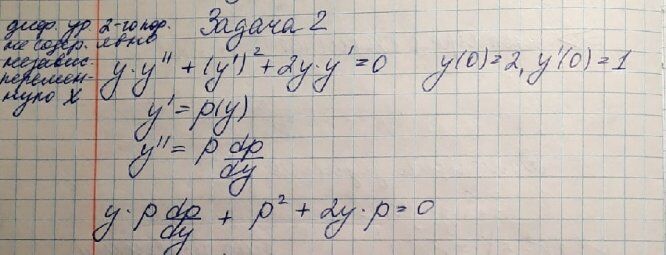 диф. ур. 2-го пор.
не содер. явно
независ.
перемен-
ную x
Задача 2
y·y'' + (y')² + 2y·y' = 0 y(0)=2, y'(0)=1
y' = p(y)
y'' = p dp/dy
y·p dp/dy + p² + 2y·p = 0